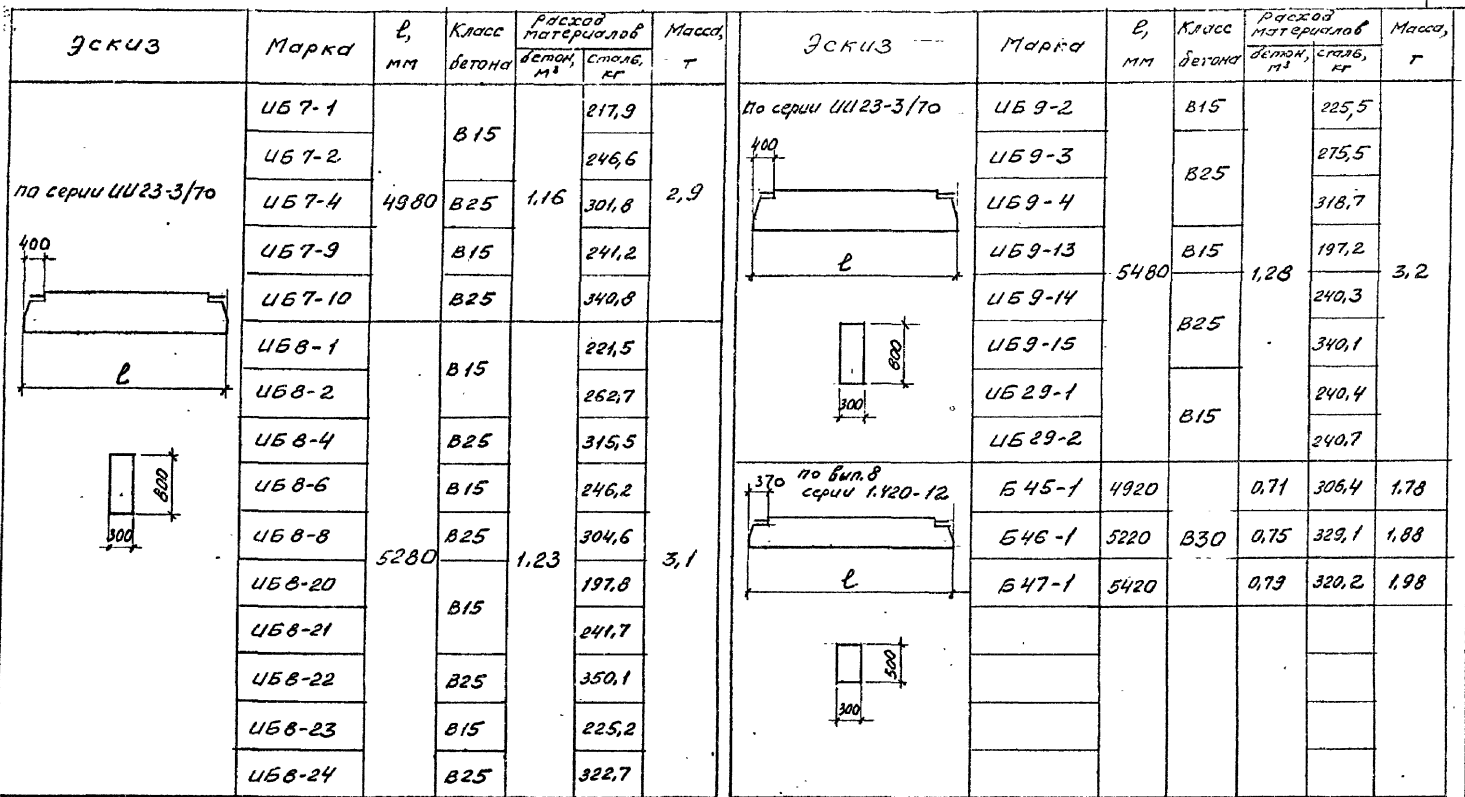 Эскиз Марка ℓ, мм Класс бетона Расход материалов бетон, м³ сталь, кг Масса, т
по серии ИИ23-3/70
400
ℓ
800
300
ИБ 7-1 4980 В15 1,16 217,9 2,9
ИБ 7-2 246,6
ИБ 7-4 В25 301,8
ИБ 7-9 В15 241,2
ИБ 7-10 В25 340,8
ИБ 8-1 5280 В15 1,23 221,5 3,1
ИБ 8-2 262,7
ИБ 8-4 В25 315,5
ИБ 8-6 В15 246,2
ИБ 8-8 В25 304,6
ИБ 8-20 В15 197,8
ИБ 8-21 241,7
ИБ 8-22 В25 350,1
ИБ 8-23 В15 225,2
ИБ 8-24 В25 322,7
Эскиз Марка ℓ, мм Класс бетона Расход материалов бетон, м³ сталь, кг Масса, т
По серии ИИ23-3/70
400
ℓ
800
300
ИБ 9-2 5480 В15 1,28 225,5 3,2
ИБ 9-3 В25 275,5
ИБ 9-4 318,7
ИБ 9-13 В15 197,2
ИБ 9-14 В25 240,3
ИБ 9-15 340,1
ИБ 29-1 В15 240,4
ИБ 29-2 240,7
370 по вып. 8
серии 1.420-12
ℓ
500
300
Б 45-1 4920 В30 0,71 306,4 1.78
Б 46-1 5220 0,75 329,1 1,88
Б 47-1 5420 0,79 320,2 1,98